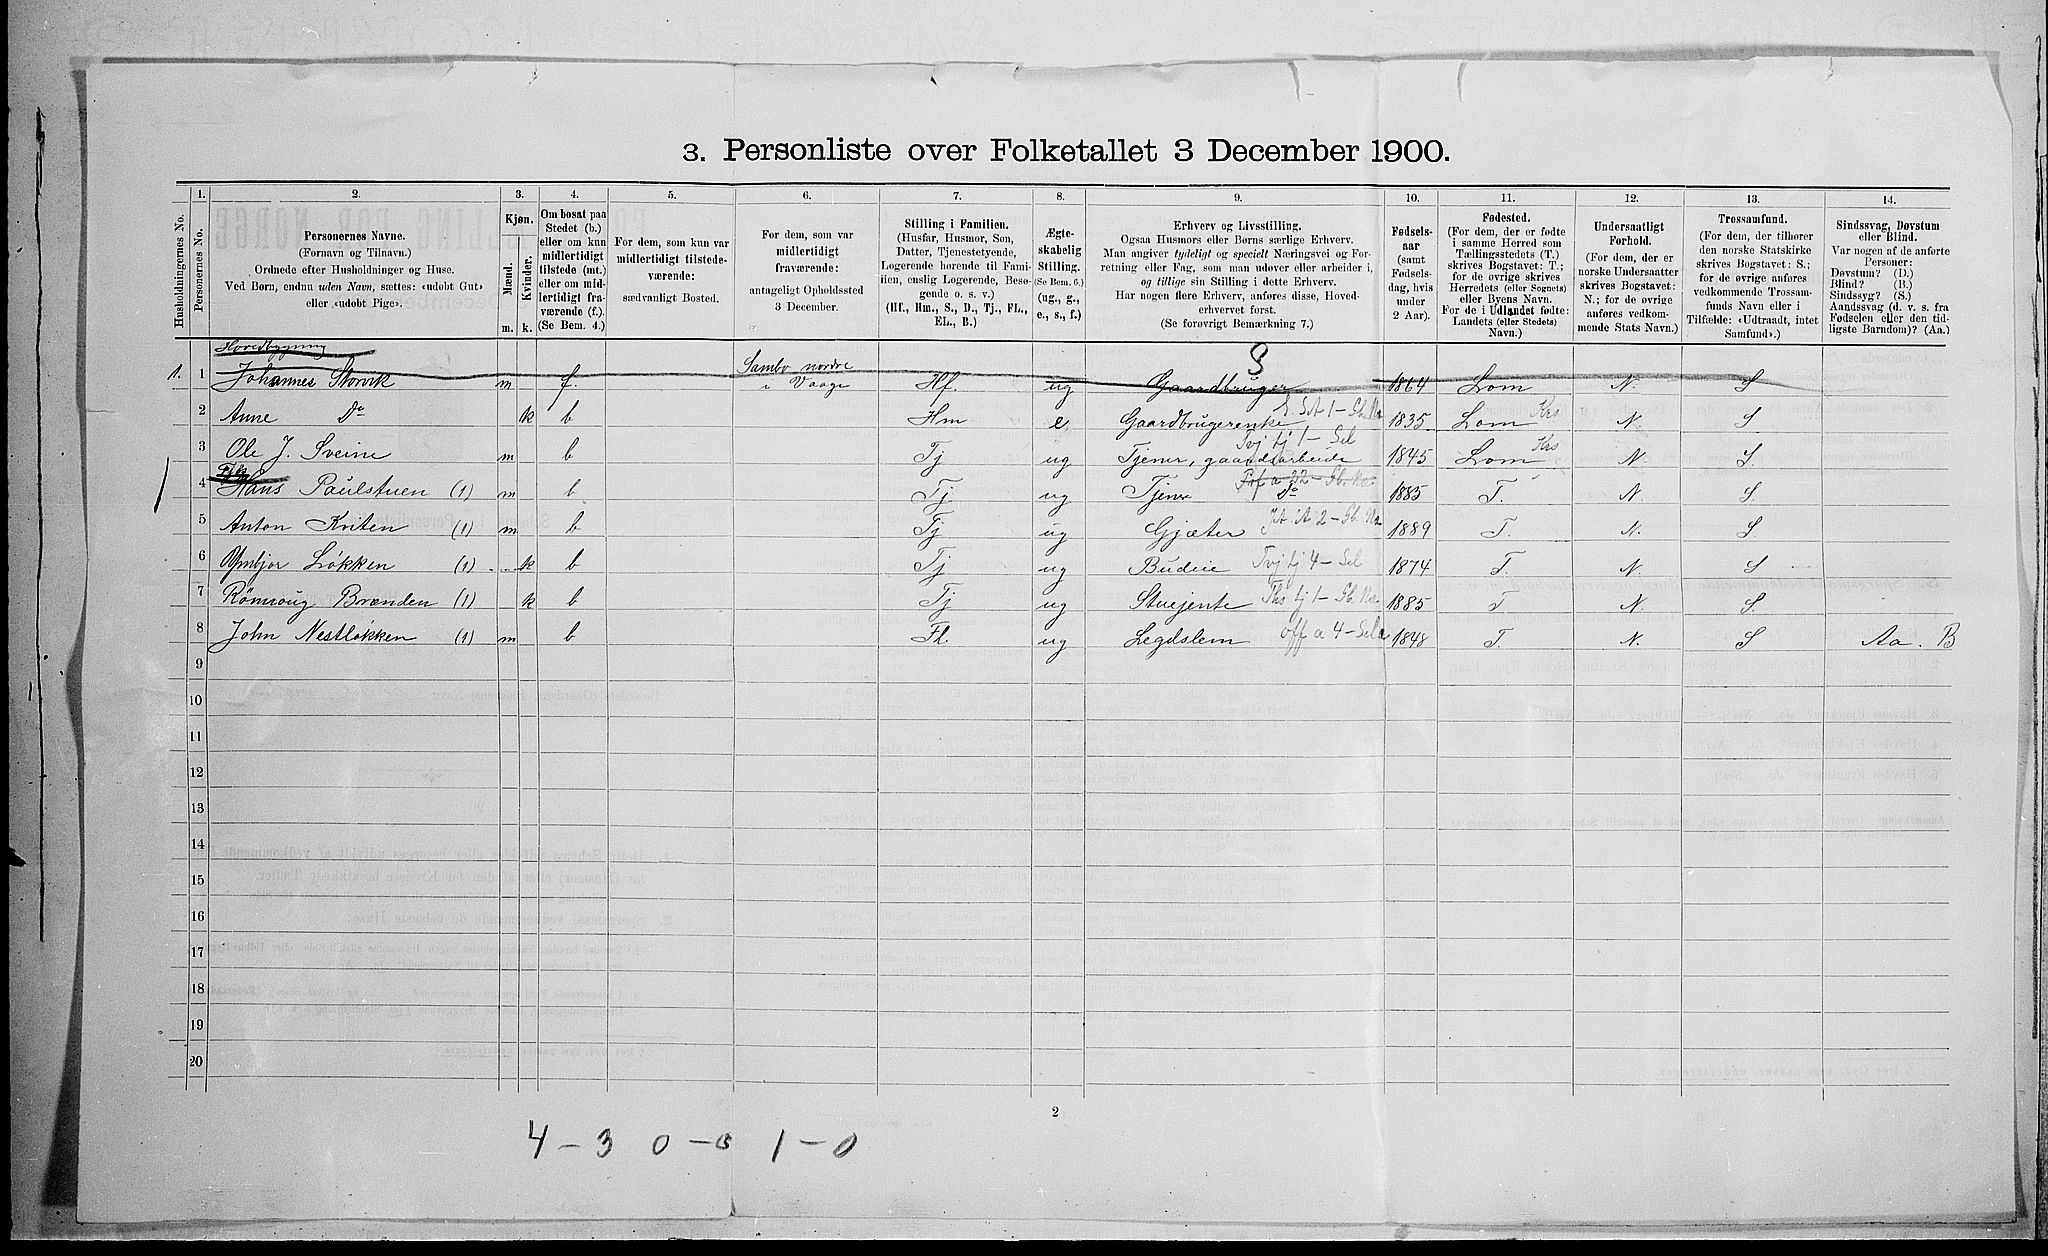 3. Personliste over Folketallet 3 December 1900.
Husholdningernes No.
1.
Personernes No.
2.
Personernes Navne.
(Fornavn og Tilnavn.)
Ordnede efter Husholdninger og Huse.
Ved Børn, endnu uden Navn, sættes: «udobt Gut»
eller «udobt Pige».
3.
Kjøn.
Mænd.
Kvinder.
m.
k.
4.
Om bosat paa
Stedet (b.)
eller om kun
midlertidigt
tilstede (mt.)
eller om mid-
lertidigt fra-
værende (f.).
(Se Bem. 4.)
5.
For dem, som kun var
midlertidigt tilstede-
værende:
sædvanligt Bosted.
6.
For dem, som var
midlertidigt
fraværende:
antageligt Opholdssted
3 December.
7.
Stilling i Familien.
(Husfar, Husmor, Søn,
Datter, Tjenestetyende,
Logerende hørende til Fami-
lien, enslig Logerende, Besø-
gende o. s. v.)
(Hf., Hm., S., D., Tj., FL.,
EL., B.)
8.
Ægte-
skabelig
Stilling.
(Se Bem. 6.)
(ug., g.,
e., s., f.)
9.
Erhverv og Livsstilling.
Ogsaa Husmors eller Børns særlige Erhverv.
Man angiver tydeligt og specielt Næringsvei og For-
retning eller Fag, som man udøver eller arbeider i,
og tillige sin Stilling i dette Erhverv.
Har nogen flere Erhverv, anføres disse, Hoved-
erhvervet først.
(Se forøvrigt Bemærkning 7.)
10.
Fødsels-
aar
(samt
Fødsels-
dag, hvis
under
2 Aar).
11.
Fødested.
(For dem, der er fødte
i samme Herred som
Tællingsstedets (T.)
skrives Bogstavet: T.;
for de øvrige skrives
Herredets (eller Sognets)
eller Byens Navn.
For de i Udlandet fødte:
Landets (eller Stedets)
Navn.)
12.
Undersaatligt
Forhold.
(For dem, der er
norske Undersaatter
skrives Bogstavet:
N.; for de øvrige
anføres vedkom-
mende Stats Navn.)
13.
Trossamfund.
(For dem, der tilhører
den norske Statskirke
skrives Bogstavet: S.;
for de øvrige anføres
vedkommende Trossam-
funds Navn eller i
Tilfælde: «Udtraadt, intet
Samfund».)
14.
Sindssvag, Døvstum
eller Blind.
Var nogen af de anførte
Personer:
Døvstum? (D.)
Blind? (B.)
Sindssyg? (S.)
Aandssvag (d. v. s. fra
Fødselen eller den tid-
ligste Barndom)? (Aa.)
Hovedbygning
1. 1 Johannes Storvik m f. Sambo nordre i Vaage Hf ug Gaardbruger 1864 Lom N. S
2 Anne Do k b Hm e Gaardbrugerenke 1835 Lom Krs N. S.
3 Ole J. Sveine m b Tj ug Tjener, gaardsarbeide Tvj tj 1 - Sel 1845 Lom Krs N. S.
4 Hans Paulstuen (1) m b Tj ug Tjener Do 1885 T. N. S
5 Anton Kviten (1) m b Tj ug Gjæter 1889 T. N. S
6 Løkken (1) k b Tj ug Budeie Tvj tj 4 - Sel 1874 T. N. S
7 Rømoug Brænden (1) k b Tj ug Stuejente 1885 T N. S.
8 John Nestløkken (1) m b Fl. ug Legdslem off a 4 - Sel 1848 T. N. S Aa. B
9
10
11
12
13
14
15
16
17
18
19
20
2
4 - 3 0 - 3 1 - 0